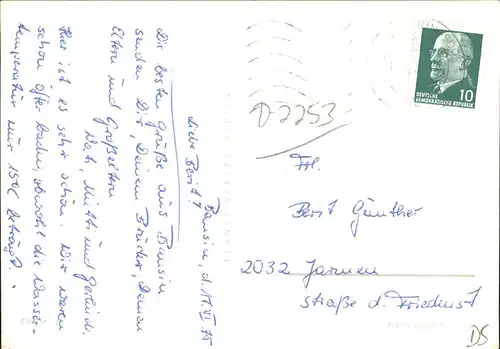 Bansin, d. 17. VI. 75
Liebe Berit!
Die besten Grüße aus Bansin
senden Dir, Deinem Bruder, Deinen
Eltern und Großeltern
Mutti und
Hier ist es sehr schön. Wir waren
schon öfter baden, obwohl die Wasser-
temperatur nur 15°C beträgt.
DEUTSCHE
DEMOKRATISCHE REPUBLIK
10
D-2253
Frl.
Berit Günther
2032 Jarmen
Straße d. Friedens 1
DS